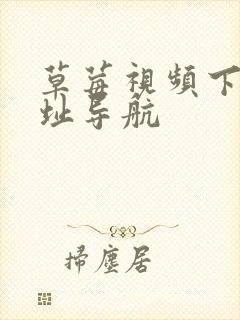 草莓視頻下
址导航
掃塵居